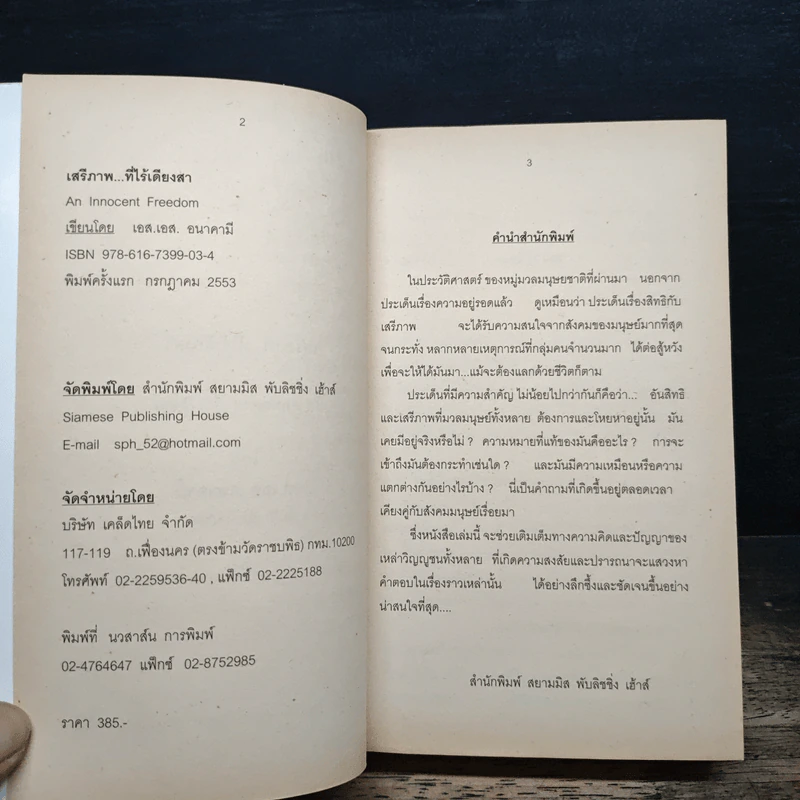 2
เสรีภาพ...ที่ไร้เดียงสา
An Innocent Freedom
เขียนโดย เอส.เอส. อนาคามี
ISBN 978-616-7399-03-4
พิมพ์ครั้งแรก กรกฎาคม 2553
จัดพิมพ์โดย สำนักพิมพ์ สยามมิส พับลิชชิ่ง เฮ้าส์
Siamese Publishing House
E-mail sph_52@hotmail.com
จัดจำหน่ายโดย
บริษัท เคล็ดไทย จำกัด
117-119 ถ.เฟื่องนคร (ตรงข้ามวัดราชบพิธ) กทม.10200
โทรศัพท์ 02-2259536-40 , แฟ็กซ์ 02-2225188
พิมพ์ที่ นวสาส์น การพิมพ์
02-4764647 แฟ็กซ์ 02-8752985
ราคา 385.-
3
คำนำสำนักพิมพ์
ในประวัติศาสตร์ ของหมู่มวลมนุษยชาติที่ผ่านมา นอกจาก
ประเด็นเรื่องความอยู่รอดแล้ว ดูเหมือนว่า ประเด็นเรื่องสิทธิกับ
เสรีภาพ จะได้รับความสนใจจากสังคมของมนุษย์มากที่สุด
จนกระทั่ง หลากหลายเหตุการณ์ที่กลุ่มคนจำนวนมาก ได้ต่อสู้หวัง
เพื่อจะให้ได้มันมา...แม้จะต้องแลกด้วยชีวิตก็ตาม
ประเด็นที่มีความสำคัญ ไม่น้อยไปกว่ากันก็คือว่า... อันสิทธิ
และเสรีภาพที่มวลมนุษย์ทั้งหลาย ต้องการและโหยหาอยู่นั้น มัน
เคยมีอยู่จริงหรือไม่ ? ความหมายที่แท้ของมันคืออะไร ? การจะ
เข้าถึงมันต้องกระทำเช่นใด ? และมันมีความเหมือนหรือความ
แตกต่างกันอย่างไรบ้าง ? นี่เป็นคำถามที่เกิดขึ้นอยู่ตลอดเวลา
เคียงคู่กับสังคมมนุษย์เรื่อยมา
ซึ่งหนังสือเล่มนี้ จะช่วยเติมเต็มทางความคิดและปัญญาของ
เหล่าวิญญูชนทั้งหลาย ที่เกิดความสงสัยและปรารถนาจะแสวงหา
คำตอบในเรื่องราวเหล่านั้น ได้อย่างลึกซึ้งและชัดเจนขึ้นอย่าง
น่าสนใจที่สุด....
สำนักพิมพ์ สยามมิส พับลิชชิ่ง เฮ้าส์